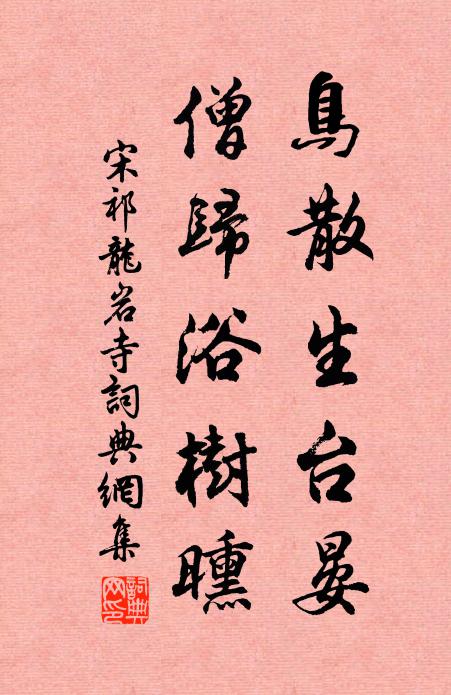 鳥散生台晏
僧歸浴樹曛
宋祁龍岩寺詞典網集
詞典網印